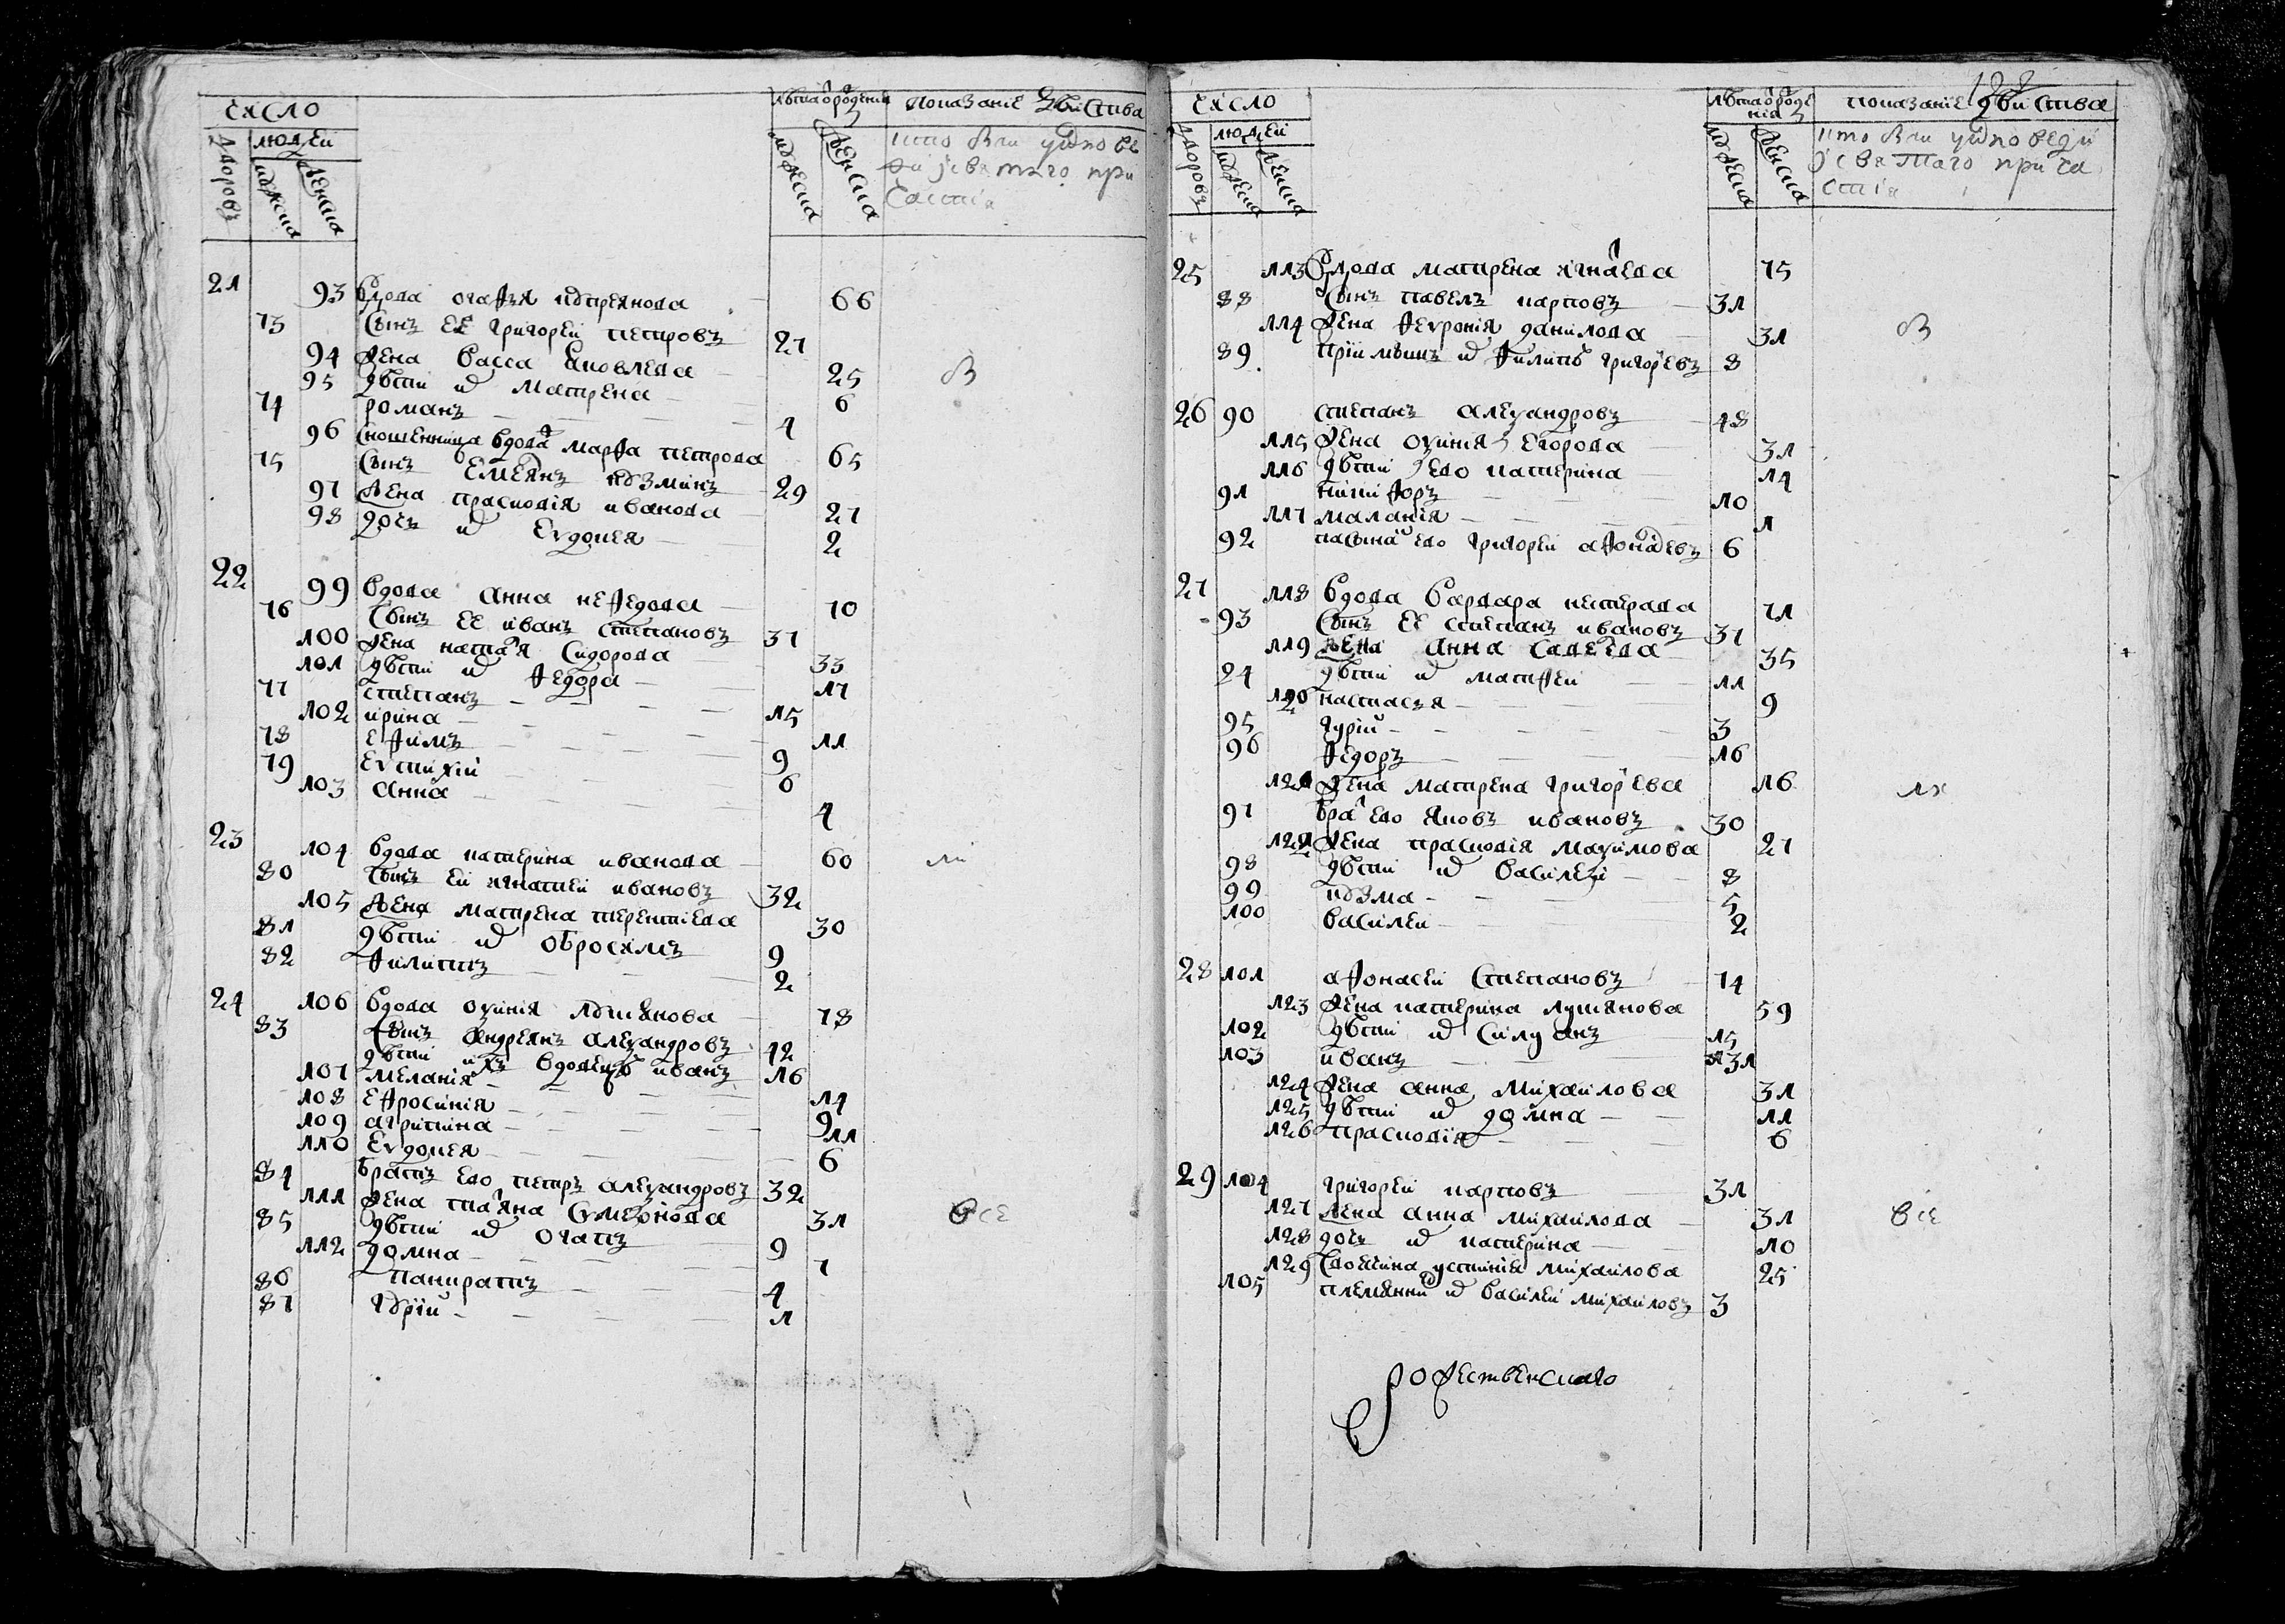 Число
людей
дворовъ
мужеска
женска
Лѣта ѿ рожденія
мужеска
женска
показаніе дѣйства
кто былъ у исповеди
и святаго при
частія
21 93 вдова агафья кудреянова 66
73 Сынъ ее григорей петровъ 27
94 жена васса яковлева 25
95 дѣти их матрена 6
74 романъ 4
96 вдова марфа петрова 65
75 Сынъ Емелянъ кузминъ 29
97 жена прасковія иванова 27
98 дочь их евдокея 2
22 99 вдова анна нефедова 70
76 Сынъ ее иванъ степановъ 37
100 жена настася Сидорова 33
101 дѣти их федора 17
77 степанъ 15
102 ирина 11
78 ефимъ 9
79 евтихий 6
103 анна 4
23 104 вдова катерина иванова 60
80 Сынъ ей игнатей иванов 32
105 жена матрена терентiева 30
81 дѣти их обросимъ 9
82 филиппъ 2
24 106 вдова оксинiя лукианова 78
83 Сынъ андреянъ александровъ 42
дѣти их вдовецъ иванъ 16
107 меланiя 14
108 ефросинiя 9
109 агрипина 11
110 евдокея 6
84 братъ ево петръ александровъ 32
111 жена татiяна 31
85 дѣти их 9
112 домна 7
86 панкратъ 4
87 гурiй 1
все
Число
людей
дворовъ
мужеска
женска
Лѣта ѿ рожде
нія
мужеска
женска
показаніе дѣйства
кто былъ у исповеди
и святаго прича
стiя
25 113 вдова матрена игнатева 75
88 Сынъ павелъ карповъ 31
114 жена февронiя данилова 31
89 прiимышъ их филипъ григорiевъ 8
26 90 степанъ александровъ 48
115 жена оксинiя егорова 31
116 дѣти ево катерина 14
91 никифоръ 10
117 маланiя 1
92 пасынок ево григорей афонасевъ 6
27 118 вдова варвара нестерова 71
93 Сынъ ее степанъ ивановъ 37
119 жена анна савелева 35
24 дѣти их матфей 11
120 настасея 9
95 гурiй 3
96 федоръ 16
121 жена матрена григорiева 16
97 братъ ево яковъ ивановъ 30
122 жена прасковiя максимова 27
98 дѣти их василей 8
99 кузма 5
100 василей 2
28 101 афонасей степановъ 74
123 жена катерина лукiянова 59
102 дѣти их силуанъ 15
103 иванъ 31
124 жена анна михайлова 31
125 дѣти их домна 11
126 прасковiя 6
29 104 григорей карповъ 31
127 жена анна михайлова 31
все
128 дочь их катерина 10
129 своячина устинiя михайлова 25
105 племянникъ их василей михайловъ 3
рожественскаго